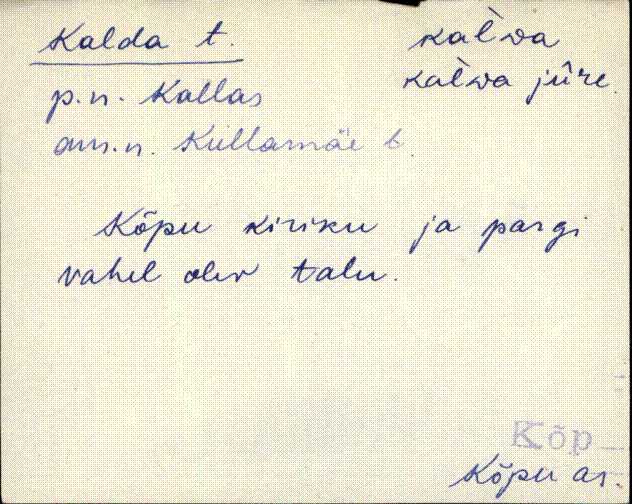 Kalda t.
kal̀da
kal̀da jûre
p.n. Kallas
am.n. Küllamäe t.
Kõpu kiriku ja pargi
vahel olev talu.
Kõp
Kõpu as.